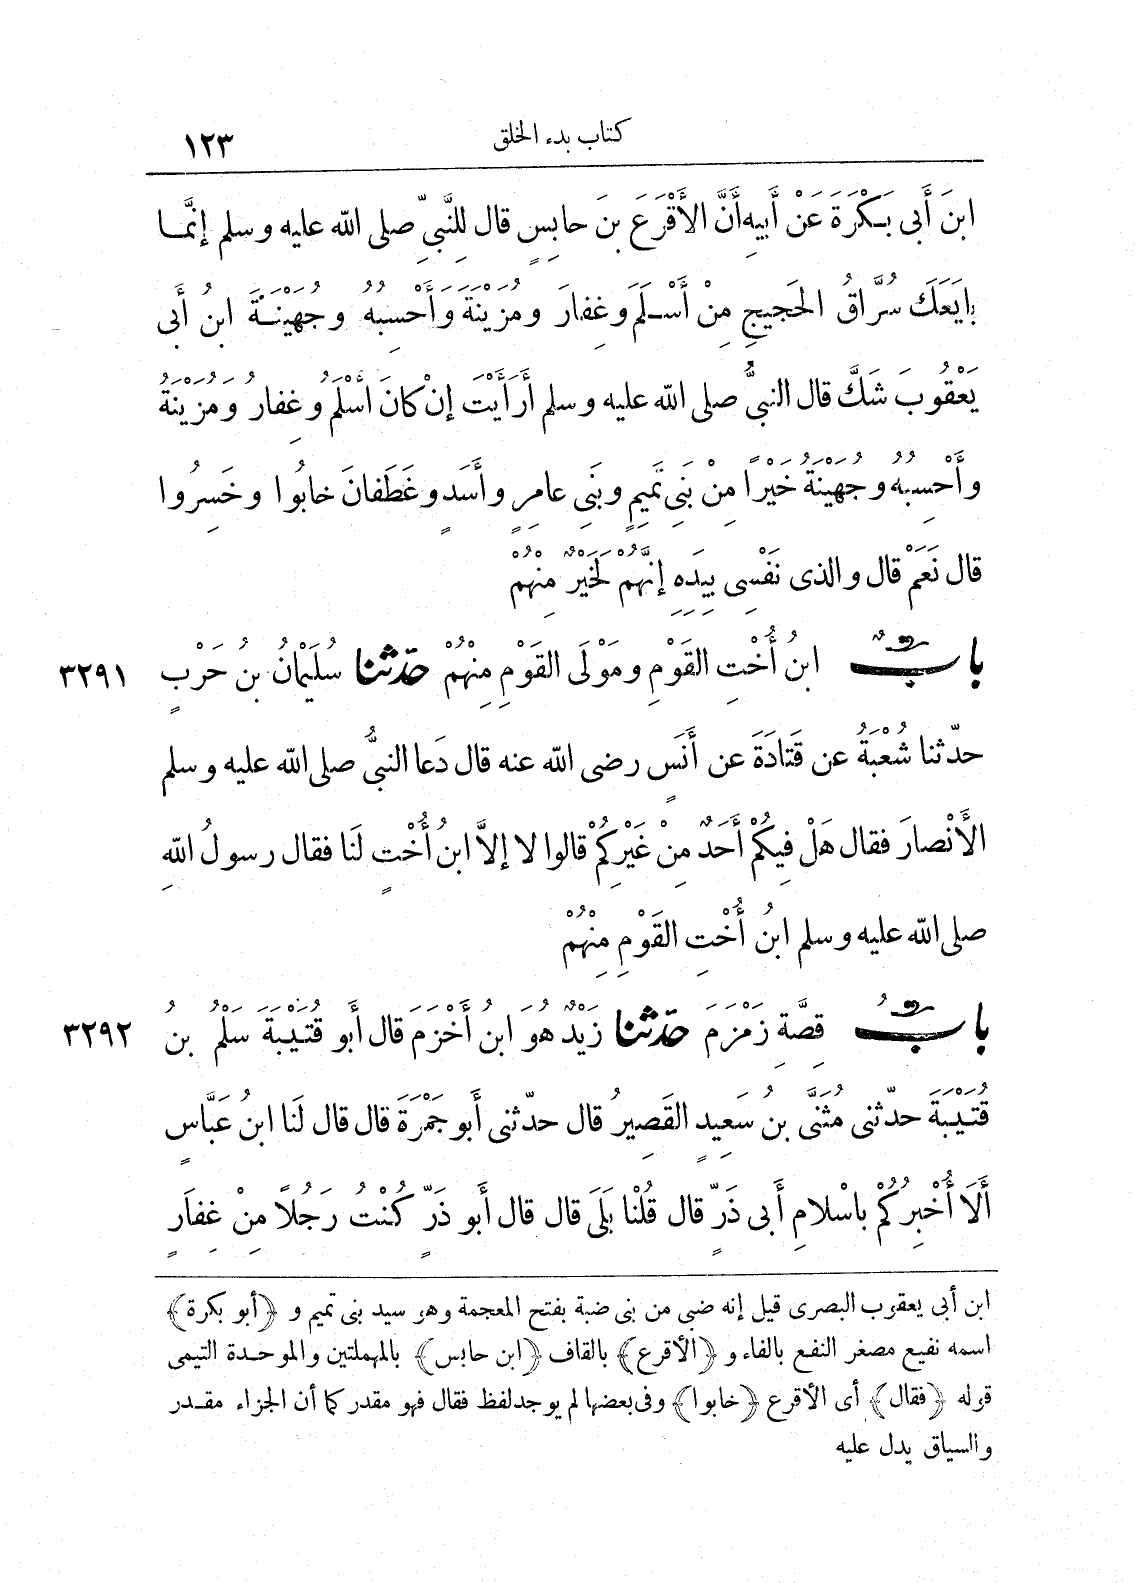 كتاب بدء الخلق ١٢٣
ابنَ أَبى بَكْرَةَ عَنْ أَبِيهِ أَنَّ الأَقْرَعَ بنَ حابِسٍ قال لِلنَّبِيِّ صلى الله عليه وسلم إنَّمـا
بايَعَكَ سُرَّاقُ الحَجِيجِ مِنْ أَسْـلَمَ وغِفارَ ومُزَيْنَةَ وَأَحْسِبُهُ وجُهَيْنَـةَ ابنُ أَبى
يَعْقُوبَ شَكَّ قال النبىُّ صلى الله عليه وسلم أَرَأَيْتَ إنْ كانَ أَسْلَمُ وغِفارُ ومُزَيْنَةُ
وأَحْسِبُهُ وجُهَيْنَةُ خَيْرًا مِنْ بَنِى تَمِيمٍ وبَنِى عامِرٍ وأَسَدٍ وغَطَفانَ خابُوا وخَسِرُوا
قال نَعَمْ قال والذى نَفْسِى بِيَدِهِ إنَّهُمْ لَخَيْرٌ مِنْهُمْ
بابٌ ابنُ أُخْتِ القَوْمِ ومَوْلَى القَوْمِ مِنْهُمْ حدّثنا سُلَيْمانُ بنُ حَرْبٍ ٣٢٩١
حدّثنا شُعْبَةُ عن قَتادَةَ عن أَنَسٍ رضى الله عنه قال دَعا النبىُّ صلى الله عليه وسلم
الأَنْصارَ فقال هَلْ فِيكُمْ أَحَدٌ مِنْ غَيْرِكُمْ قالوا لا إلاَّ ابنُ أُخْتٍ لَنا فقال رسولُ اللهِ
صلى الله عليه وسلم ابنُ أُخْتِ القَوْمِ مِنْهُمْ
بابُ قِصَّةِ زَمْزَمَ حدّثنا زَيْدٌ هُوَ ابنُ أَخْزَمَ قال أَبو قُتَيْبَةَ سَلْمُ بنُ ٣٢٩٢
قُتَيْبَةَ حدّثنى مُثَنَّى بنُ سَعِيدٍ القَصِيرُ قال حدّثنى أَبو جَمْرَةَ قال قال لَنا ابنُ عَبَّاسٍ
أَلَا أُخْبِرُكُمْ باسْلامِ أَبى ذَرٍّ قال قُلْنا بَلَى قال قال أَبو ذَرٍّ كُنْتُ رَجُلاً مِنْ غِفارٍ
ابن أبى يعقوب البصرى قيل إنه ضبى من بنى ضبة بفتح المعجمة وهو سيد بنى تميم و ﴿أبو بكرة﴾
اسمه نفيع مصغر النفع بالفاء و ﴿الأقرع﴾ بالقاف ﴿ابن حابس﴾ بالمهملتين والموحـدة التيمى
قوله ﴿فقال﴾ أى الأقرع ﴿خابوا﴾ وفى بعضها لم يوجد لفظ فقال فهو مقدر كما أن الجزاء مقـدر
والسياق يدل عليه